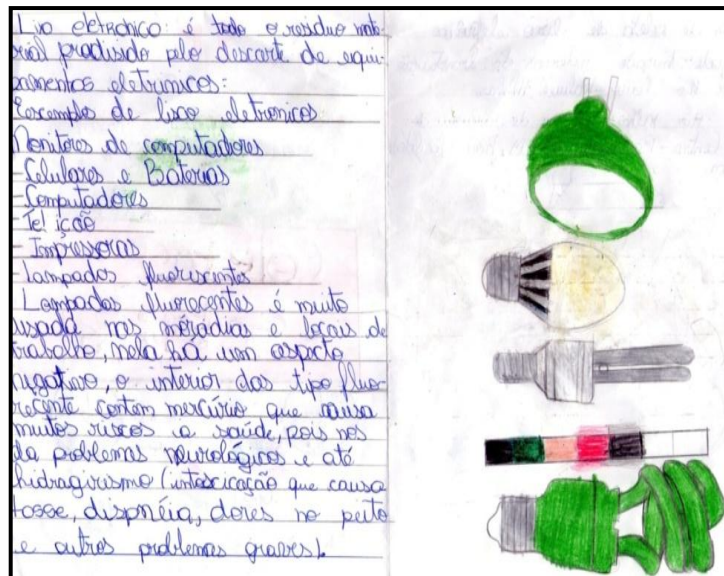 Lixo eletrônico: é todo o residuo mate-
rial produsido pelo descarte de equi-
pamentos eletrúnicos:
Exemplo de lixo eletronicos
Monitores de computadores
- Celulares e Baterias
- Computadores
- Tel ição
- Impressoras
- Lampadas fluorescentes
Lampadas fluoracentes é muito
usada nas morádias e locais de
trabalho, nela há um aspecto
nigativo, o interior das tipo fluo-
recente contem mercúrio que causa
muitos riscos a saúde, pois nos
da problemas neurológicos e até
hidragirismo (intoxicação que causa
tosse, dispnéia, dores no peito
e outros problemas graves).